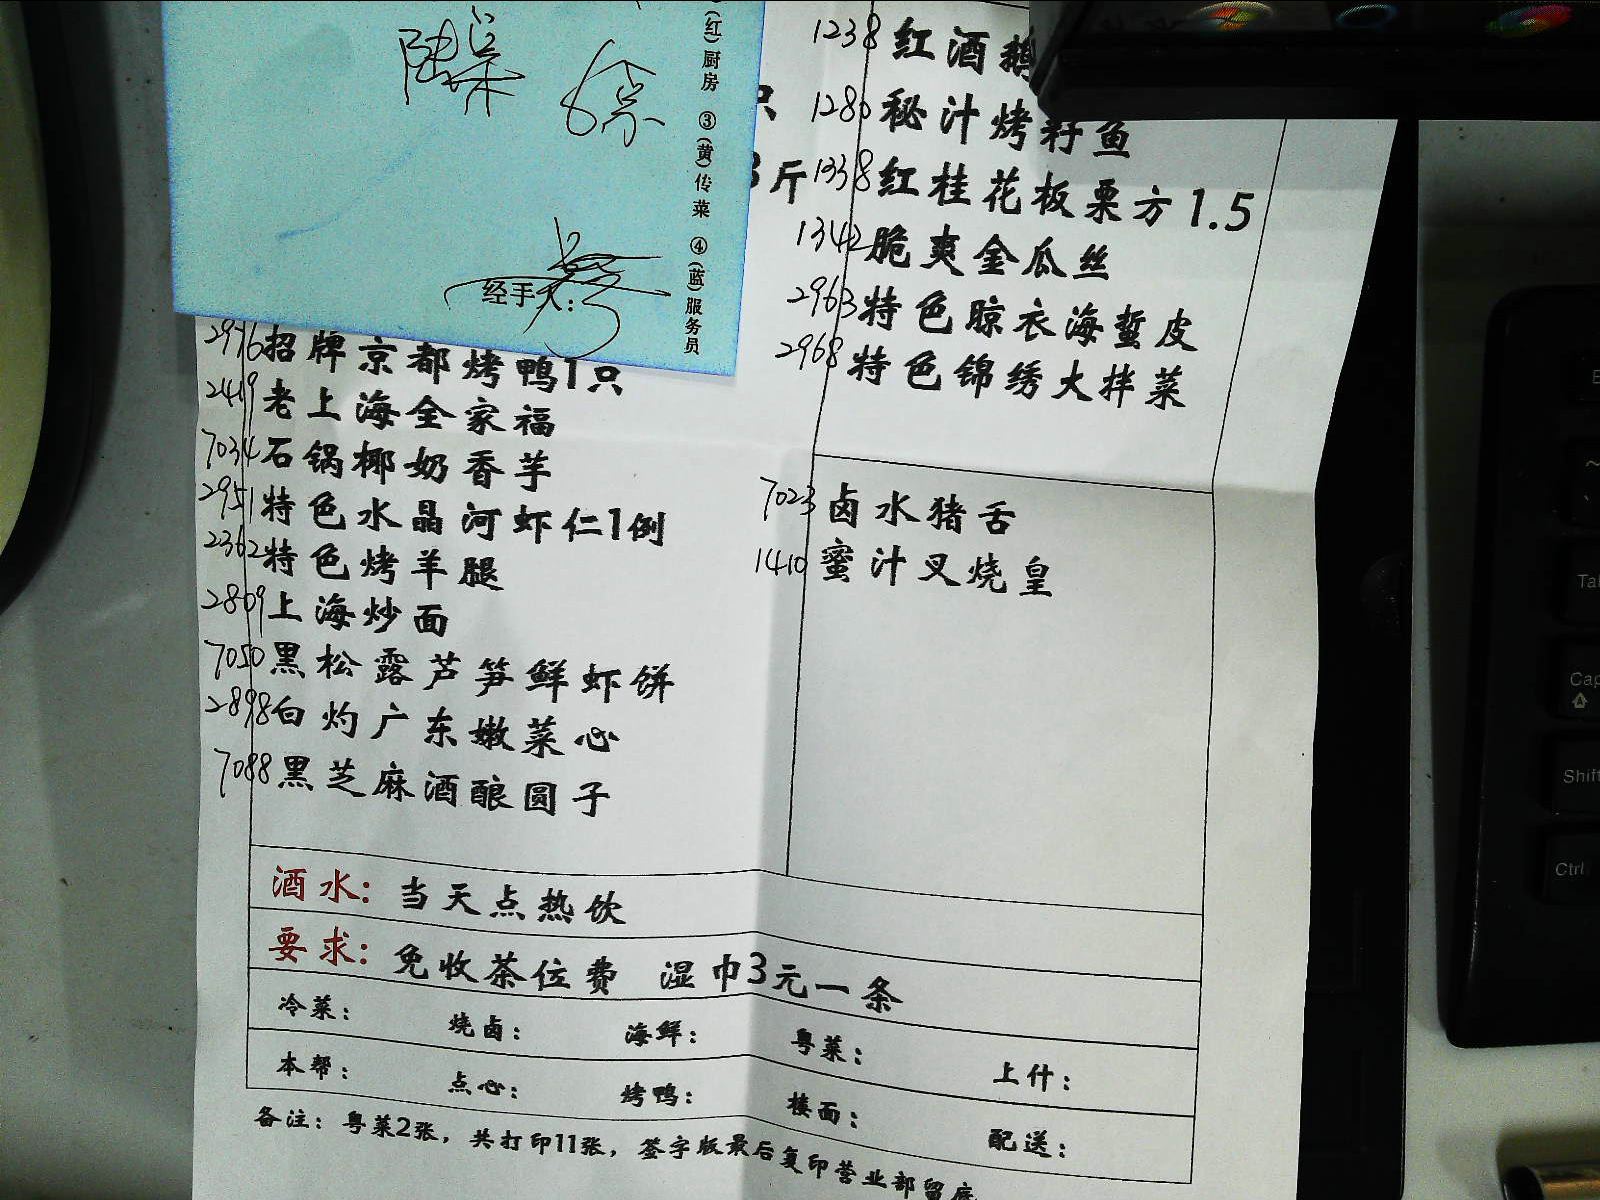 (红)厨房 ③(黄)传菜 ④(蓝)服务员
经手人:
只
斤
1238 红酒鹅
1280 秘汁烤籽鱼
1338 红桂花板栗方1.5
1342 脆爽金瓜丝
2963 特色晾衣海蜇皮
2968 特色锦绣大拌菜
2976 招牌京都烤鸭1只
2419 老上海全家福
7034 石锅椰奶香芋
2951 特色水晶河虾仁1例
2362 特色烤羊腿
2809 上海炒面
7050 黑松露芦笋鲜虾饼
2898 白灼广东嫩菜心
7088 黑芝麻酒酿圆子
7023 卤水猪舌
1410 蜜汁叉烧皇
酒水: 当天点热饮
要求: 免收茶位费 湿巾3元一条
冷菜: 烧卤: 海鲜: 粤菜: 上什:
本帮: 点心: 烤鸭: 楼面: 配送:
备注: 粤菜2张, 共打印11张, 签字版最后复印营业部留底
Cap
Shift
Ctrl